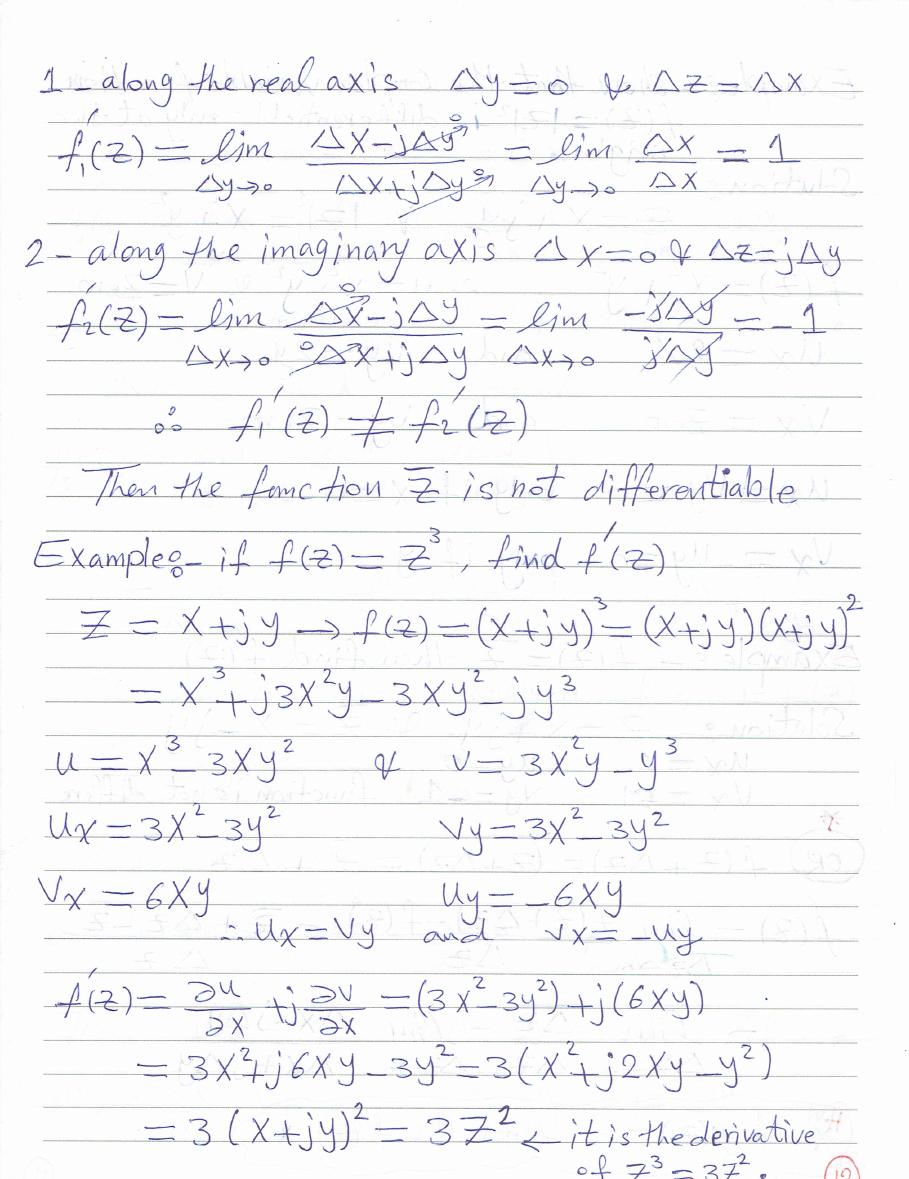 1- along the real axis Δy=0 & Δz=Δx
f₁'(z) = lim Δy→0 (Δx-jΔy⁰)/(Δx+jΔy⁰) = lim Δy→0 Δx/Δx = 1
2- along the imaginary axis Δx=0 & Δz=jΔy
f₂'(z) = lim Δx→0 (Δx⁰-jΔy)/(Δx⁰+jΔy) = lim Δx→0 -jΔy/jΔy = -1
∴ f₁'(z) ≠ f₂'(z)
Then the function z̅ is not differentiable
Example:- if f(z) = z³, find f'(z)
z = x+jy → f(z) = (x+jy)³ = (x+jy)(x+jy)²
= x³+j3x²y-3xy²-jy³
u = x³-3xy² & v = 3x²y-y³
ux = 3x²-3y² vy = 3x²-3y²
vx = 6xy uy = -6xy
∴ ux = vy and vx = -uy
f'(z) = ∂u/∂x +j ∂v/∂x = (3x²-3y²)+j(6xy)
= 3x²+j6xy-3y² = 3(x²+j2xy-y²)
= 3(x+jy)² = 3z² ← it is the derivative
of z³ = 3z².